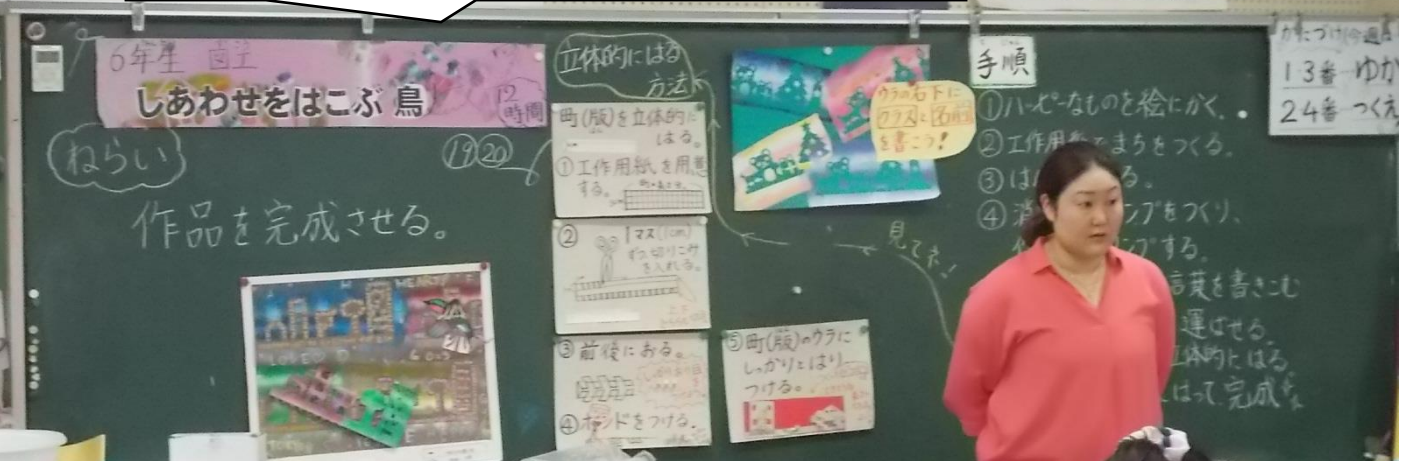 6年生 図工
しあわせをはこぶ 鳥
12時間
ねらい
作品を完成させる。
⑲⑳
立体的にはる
方法
町(版)を立体的に
はる。
①工作用紙を用意
する。
②
1マス(1cm)
ずつ切りこみ
を入れる。
③前後におる。
④ボンドをつける。
⑤町(版)のウラに
しっかりとはり
つける。
ウラの右下に
クラスと名前
を書こう!
見てネ!
手順
①ハッピーなものを絵にかく。
②工作用紙でまちをつくる。
③は
る。
④消
ンプをつくり、
ンプする。
言葉を書きこむ
運ばせる。
立体的にはる
はって、完成
かたづけ(今週
1・3番 ゆか
2・4番 つくえ